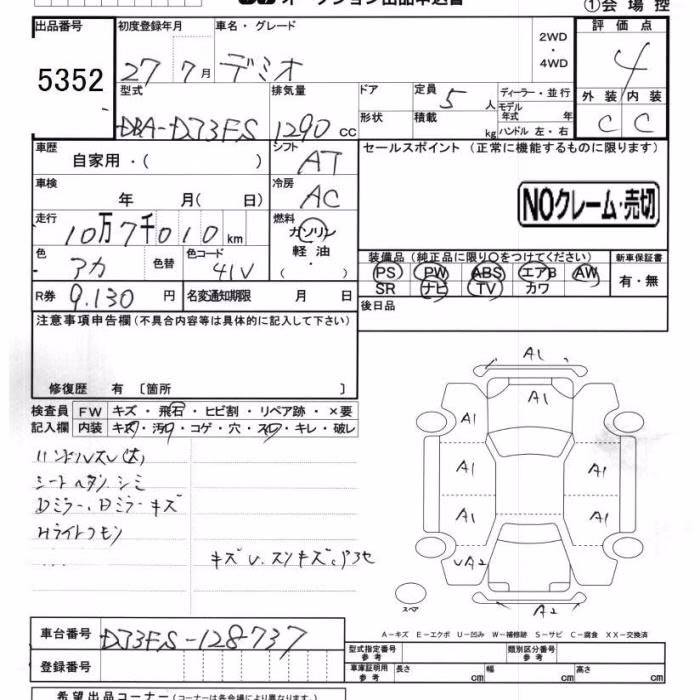 オークション出品申込書
①会場控
出品番号 5352
初度登録年月 27 7月
車名・グレード デミオ
2WD・4WD
評価点 4
外装 C 内装 C
型式 DBA-DJ3FS
排気量 1290 cc
ドア
形状
定員 5 人
積載 kg
ディーラー・並行
モデル年式 年
ハンドル 左・右
車歴 自家用・( )
シフト AT
車検 年 月( 日)
冷房 AC
走行 10万7千010km
燃料 ガソリン 軽油・
色 アカ 色替
色コード 41V
R券 9.130 円
名変通知期限 月 日
セールスポイント (正常に機能するものに限ります)
NOクレーム・売切
装備品 (純正品に限り〇をつけてください)
PS PW ABS エアB AW
SR ナビ TV カワ
新車保証書
有・無
後日品
注意事項申告欄 (不具合内容等は具体的に記入して下さい)
修復歴 有 [箇所 ]
検査員記入欄
FW キズ・飛石・ヒビ割・リペア跡・×要
内装 キズ・汚れ・コゲ・穴・スレ・キレ・破レ
ハンドルスレ(大)
シートヘタリ、シミ
Dミラー、Bミラーキズ
Hライトクモリ
A1
A1
A1 A1
A1 A1
UA2 A1
A2
スペア
A-キズ E-エクボ U-凹み W-補修跡 S-サビ C-腐食 XX-交換済
車台番号 DJ3FS-128737
登録番号
型式指定番号 参考
類別区分番号 参考
車庫証明用 参考
長さ cm 幅 cm 高さ cm
希望出品コーナー (コーナーは各会場により異なります)